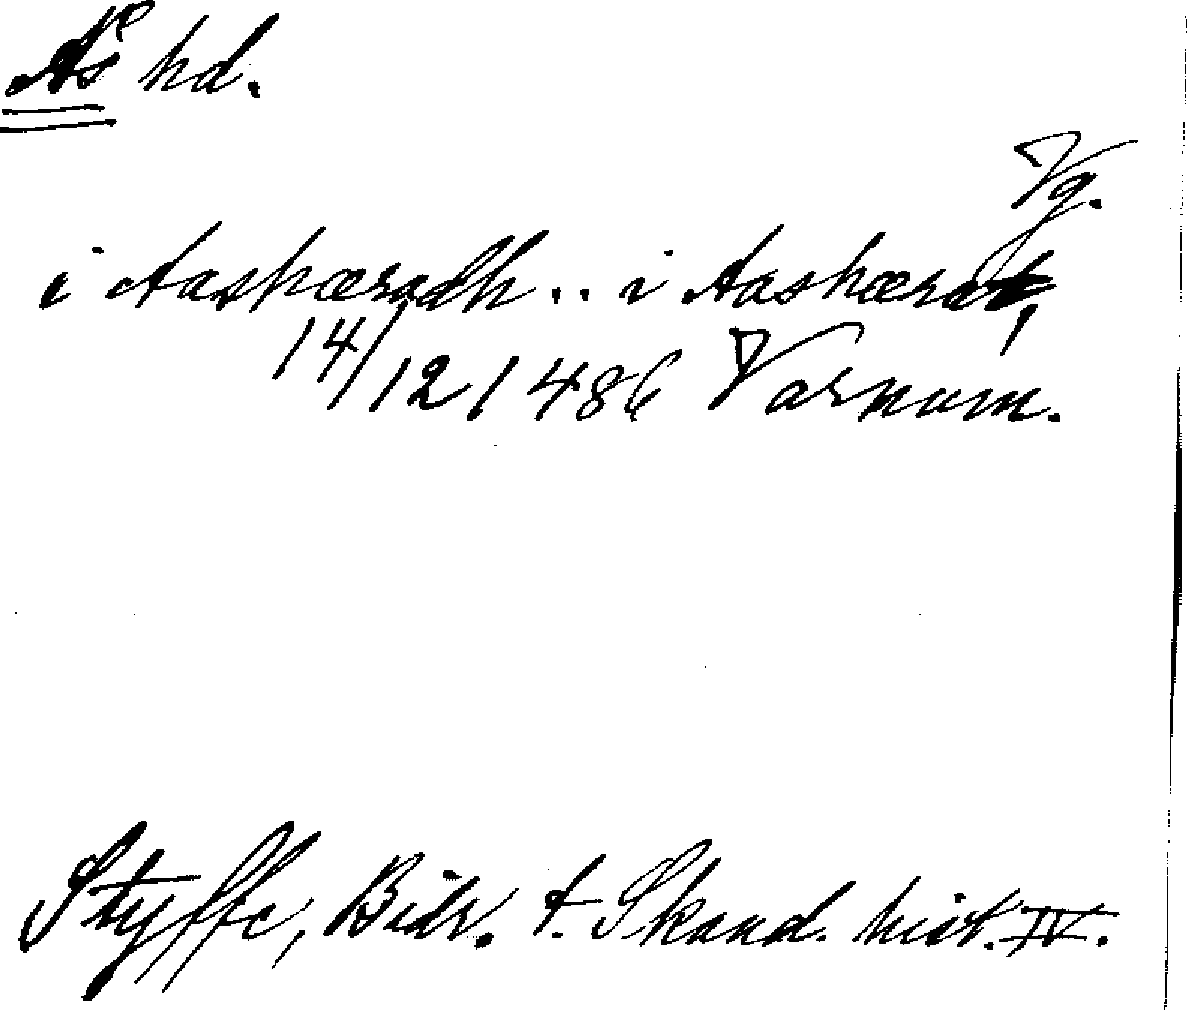 Ås hd.
Vg.
i Aashæradh .. i Aashærat,
14/12 1486 Varnum.
Styffe, Bidr. t. Skand. hist. IV.